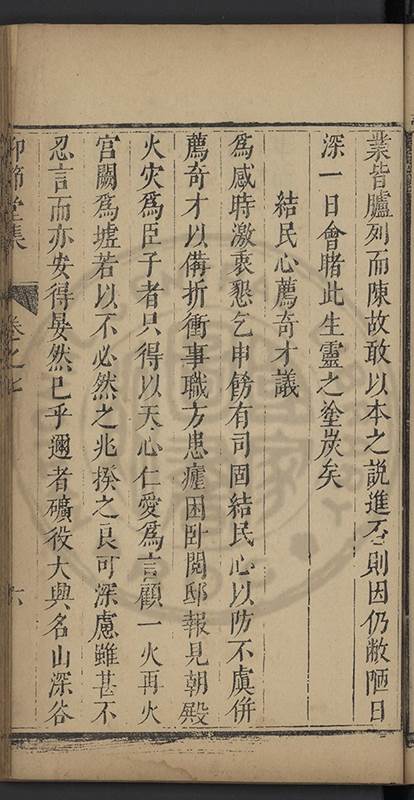 業皆臚列而陳故敢以本之說進否則因仍敝陋日
深一日會睹此生靈之塗炭矣
結民心薦奇才議
為感時激衷懇乞申飭有司固結民心以防不虞併
薦奇才以備折衝事職方患瘧困臥閱邸報見朝殿
火灾為臣子者只得以天心仁愛為言顧一火再火
宮闕為墟若以不必然之兆揆之良可深慮雖甚不
忍言而亦安得晏然已乎邇者礦役大興名山深谷
仰節堂集 卷之七 六